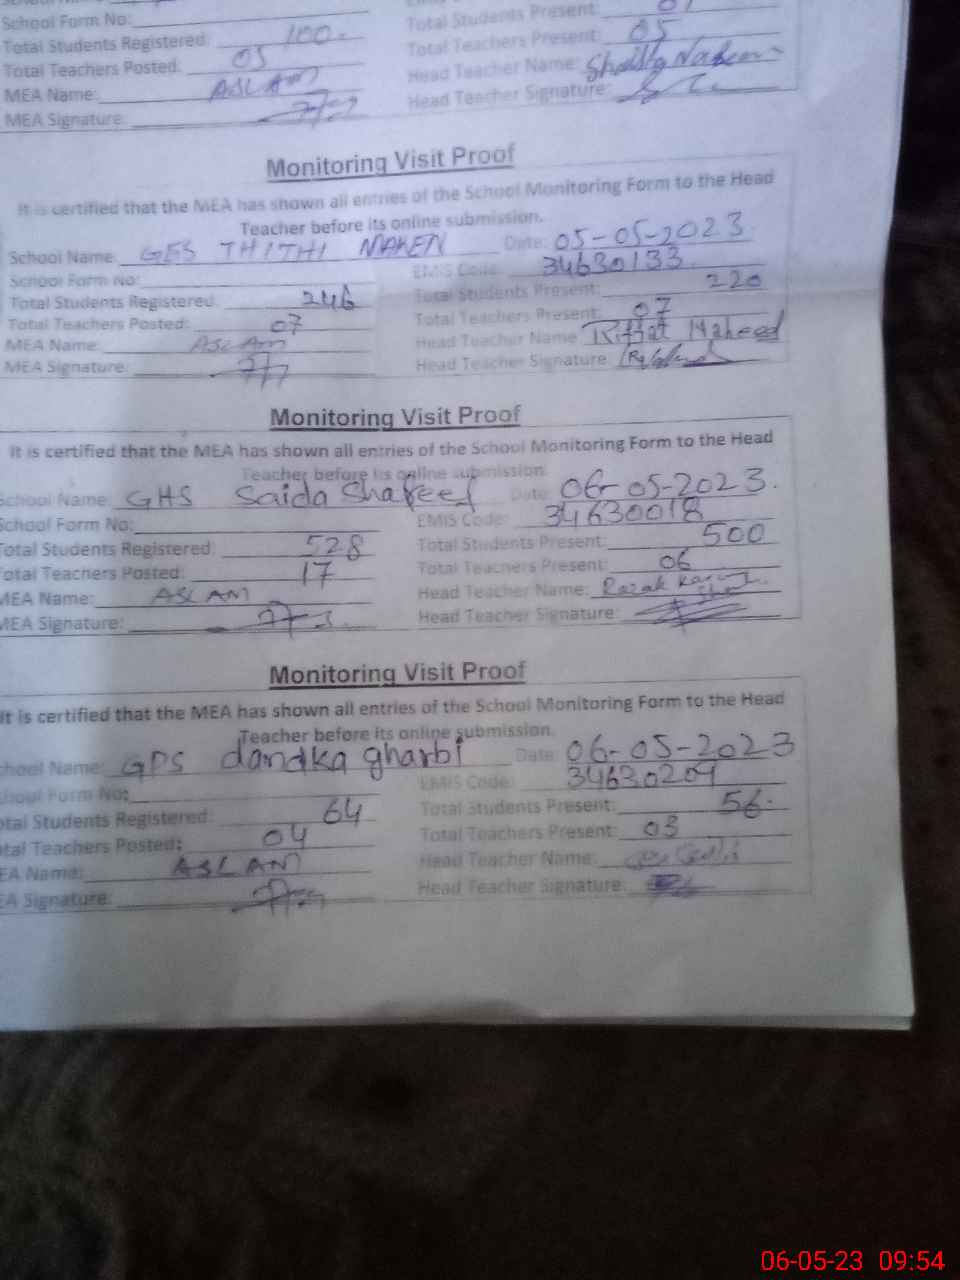 School Form No:
Total Students Registered: 100 Total Students Present:
Total Teachers Posted: 05 Total Teachers Present: 05
MEA Name: ASLAM Head Teacher Name:
MEA Signature: Head Teacher Signature:
Monitoring Visit Proof
It is certified that the MEA has shown all entries of the School Monitoring Form to the Head
Teacher before its online submission.
School Name: GES THITHI MAKEN Date: 05-05-2023
School Form No: EMIS Code: 34630133
Total Students Registered: 246 Total Students Present: 220
Total Teachers Posted: 07 Total Teachers Present: 07
MEA Name: ASLAM Head Teacher Name: Riffat
MEA Signature: Head Teacher Signature:
Monitoring Visit Proof
It is certified that the MEA has shown all entries of the School Monitoring Form to the Head
Teacher before its online submission
School Name GHS Saida Shareef Date: 06-05-2023.
School Form No: EMIS Code: 34630018
Total Students Registered: 528 Total Students Present: 500
Total Teachers Posted: 17 Total Teachers Present: 06
MEA Name: ASLAM Head Teacher Name:
MEA Signature: Head Teacher Signature:
Monitoring Visit Proof
It is certified that the MEA has shown all entries of the School Monitoring Form to the Head
Teacher before its online submission.
School Name: GPS dandka gharbi Date 06-05-2023
School Form No: EMIS Code: 34630209
Total Students Registered: 64 Total Students Present: 56
Total Teachers Posted: 04 Total Teachers Present: 03
MEA Name: ASLAM Head Teacher Name:
MEA Signature: Head Teacher Signature:
06-05-23 09:54